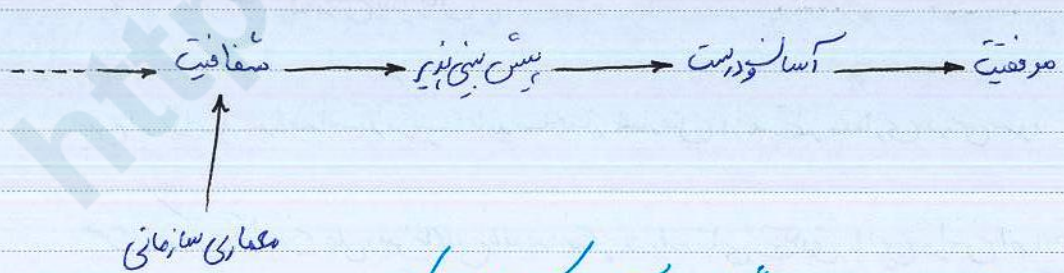 شفافیت → پیش بینی پذیر → آسان و درست → موفقیت
معماری سازمانی
http